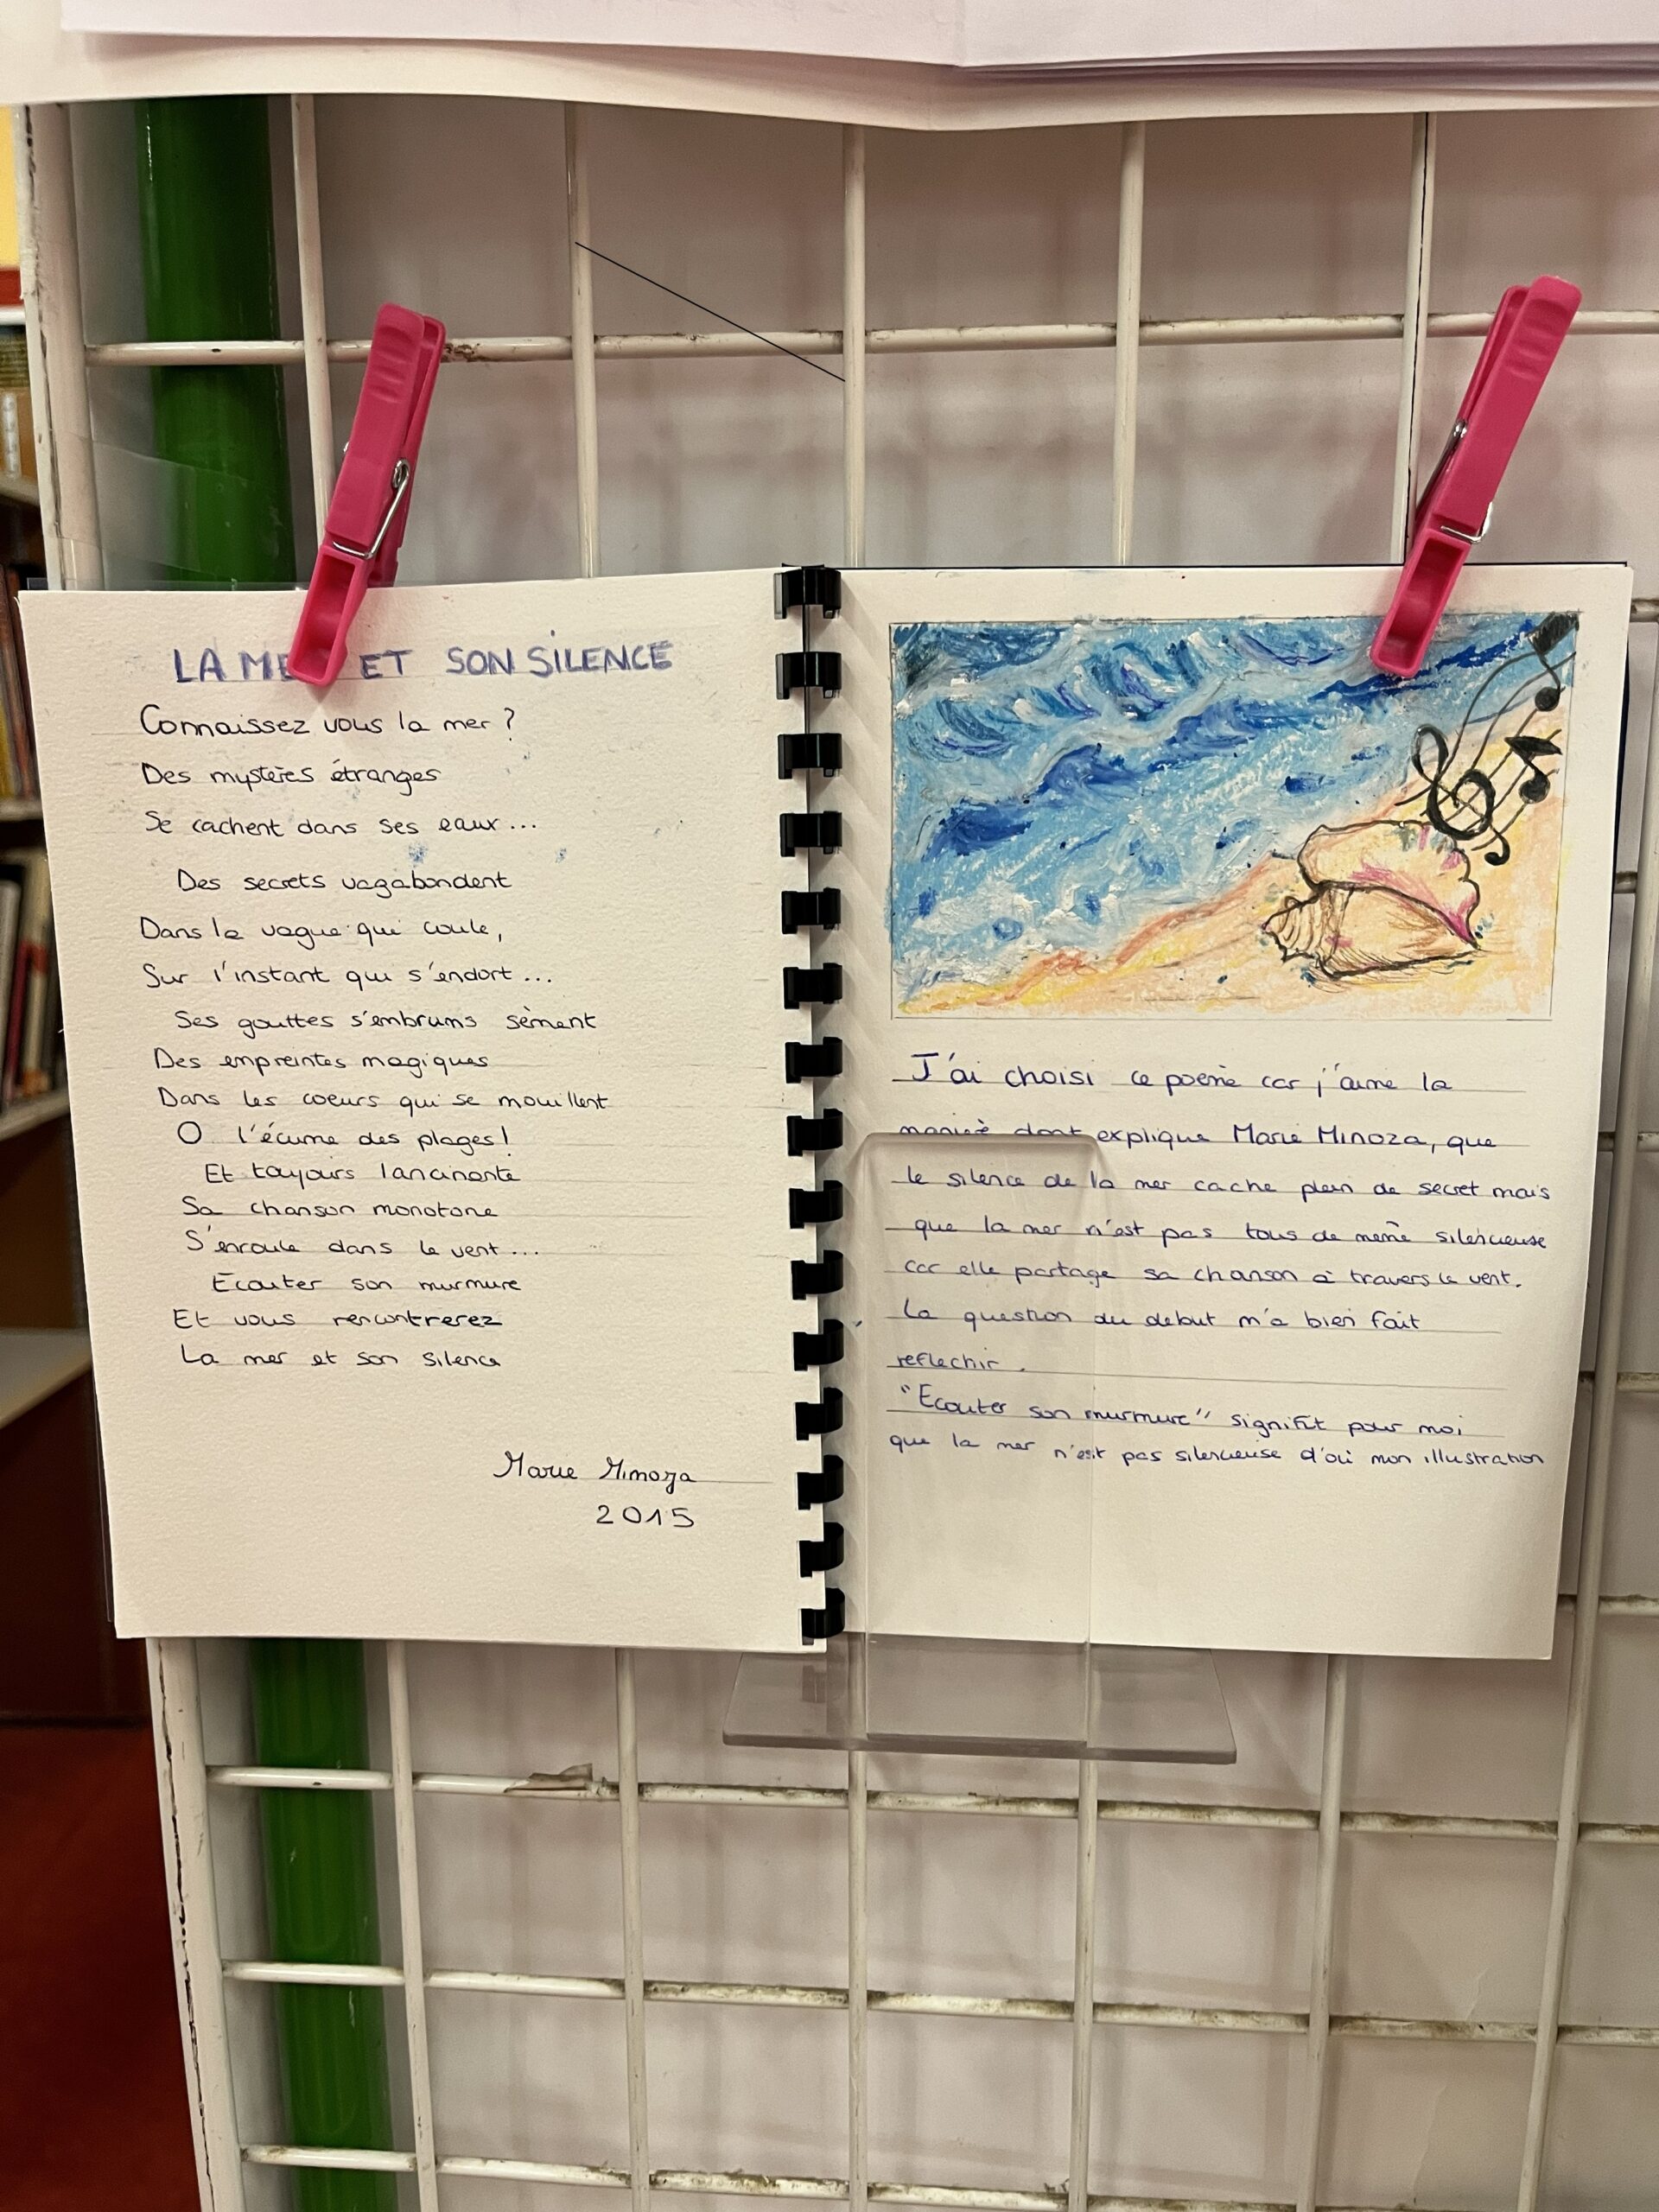 LA MER ET SON SILENCE
Connaissez vous la mer ?
Des mystères étranges
Se cachent dans ses eaux...
Des secrets vagabondent
Dans la vague qui coule,
Sur l'instant qui s'endort...
Ses gouttes s'embruns sèment
Des empreintes magiques
Dans les coeurs qui se mouillent
O l'écume des plages !
Et toujours lancinante
Sa chanson monotone
S'enroule dans le vent...
Ecouter son murmure
Et vous rencontrerez
La mer et son silence
Marie Mimoza
2015
J'ai choisi ce poème car j'aime la
manière dont explique Marie Minoza, que
le silence de la mer cache plein de secret mais
que la mer n'est pas tous de même silencieuse
car elle partage sa chanson à travers le vent.
La question du debut m'a bien fait
reflechir.
"Ecouter son murmure" signifit pour moi
que la mer n'est pas silencieuse d'où mon illustration